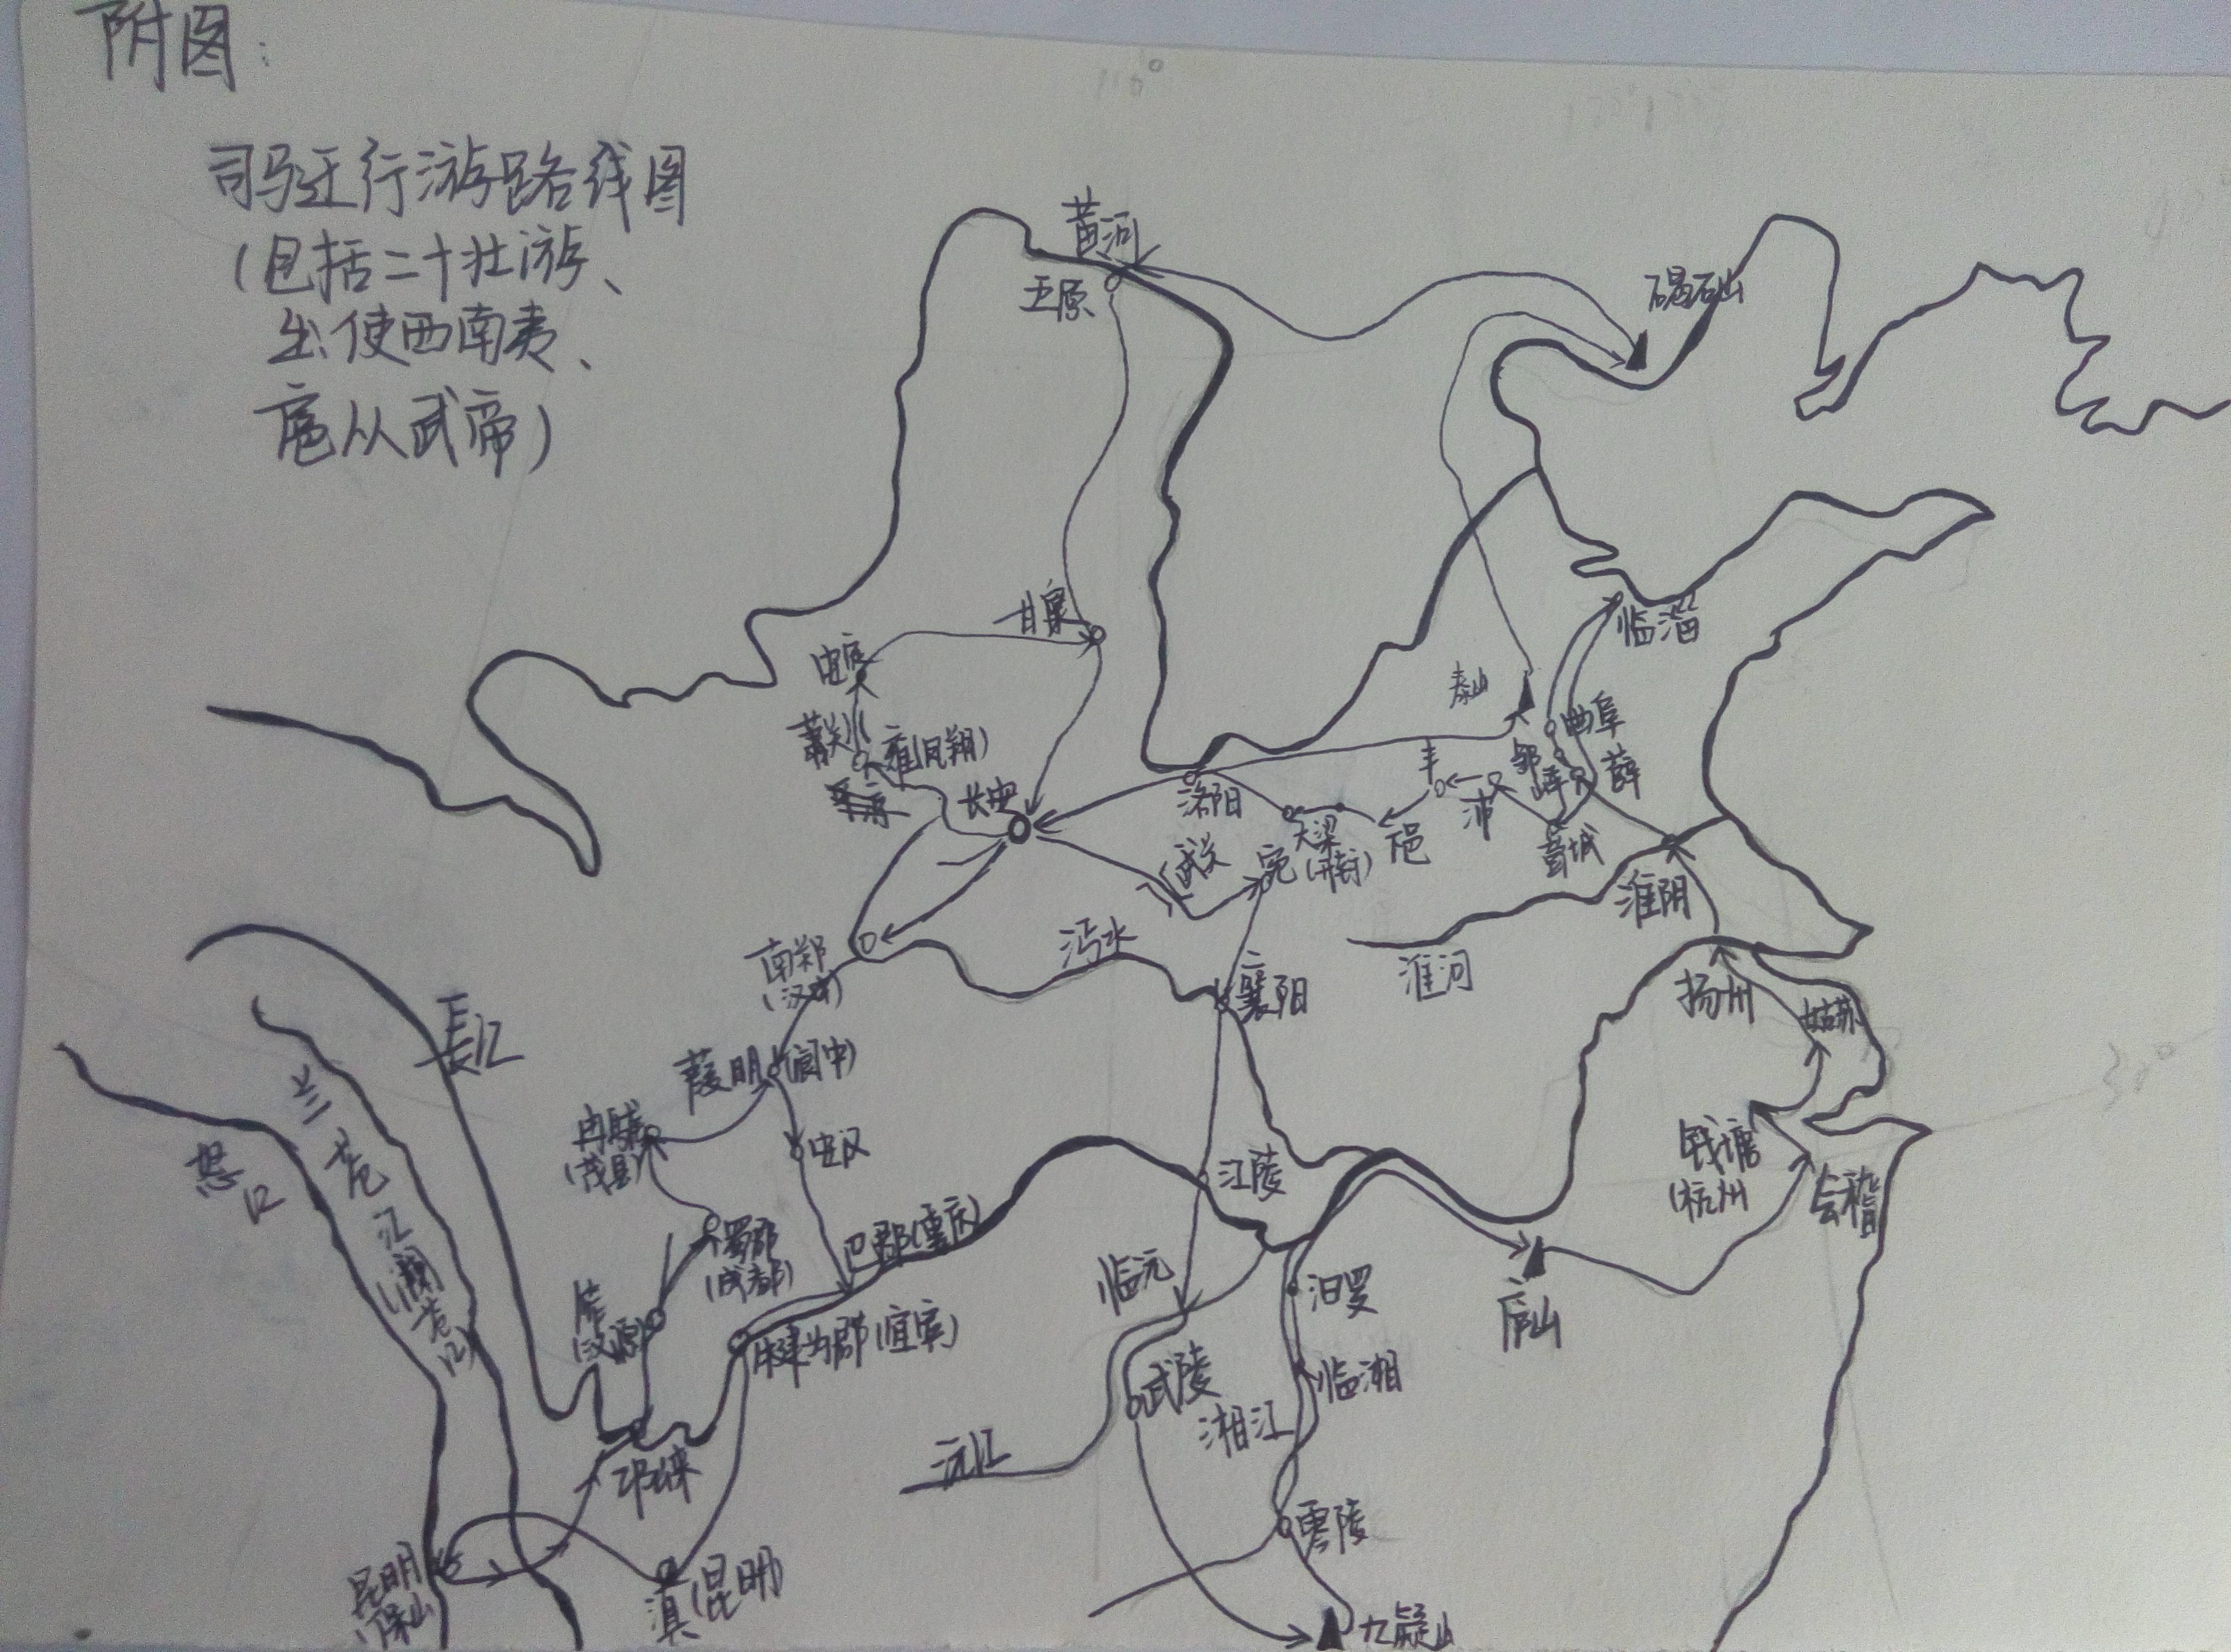 附图：
司马迁行游路线图
（包括二十壮游、
出使西南夷、
扈从武帝）
110°
黄河
五原
碣石山
甘泉
临淄
安定
泰山
曲阜
萧关
雍（凤翔）
丰
邹
峄
薛
长安
洛阳
沛
大梁
（开封）
邑
武关
宛
淮阴
南郑
（汉中）
沔水
襄阳
淮河
扬州
姑苏
长江
葭明（阆中）
30°
兰苍江（澜苍江）
冉駹
（茂县）
安汉
怒江
江陵
钱塘
（杭州
会稽
蜀郡
（成都）
巴郡（重庆）
临沅
汨罗
庐山
笮
（汉源）
犍为郡（宜宾）
武陵
临湘
湘江
沅江
邛崃
零陵
昆明
（保山
滇（昆明）
九疑山